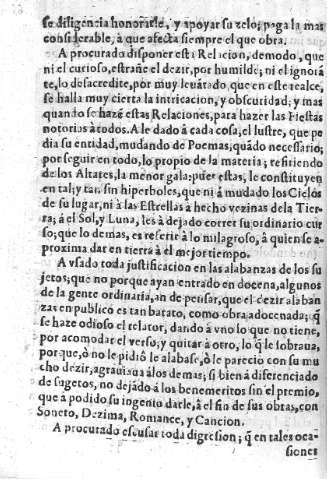 se diligencia honorarle, y apoyar su zelo; paga la mas
considerable, à que afecta siempre el que obra.
A procurado disponer esta Relacion, de modo, que
ni el curioso, estrañe el dezir, por humilde; ni el ignorã
te, lo desacredite, por muy levãtado, que en este realce,
se halla muy cierta la intricacion, y obscuridad; y mas
quando se hazẽ estas Relaciones, para hazer las Fiestas
notorias à todos. A le dado à cada cosa, el lustre, que pe
dia su entidad, mudando de Poemas, quãdo necessario;
por seguir en todo, lo propio de la materia; refiriendo
de los Altares, la menor gala: pues estas, le constituyen
en tal; y tan sin hiperboles, que ni à mudado los Cielos
de su lugar, ni à las Estrellas à hecho vezinas dela Tier-
ra; à el Sol, y Luna, les à dejado correr su ordinario cur
so; que lo demas, es referir à lo milagroso, à quien se a-
proxima dar en tierra à el mejor tiempo.
A vsado toda justificacion en las alabanzas de los su
jetos; que no porque ayan entrado en docena, algunos
de la gente ordinaria, an de pensar, que el dezir alaban
zas en publico es tan barato, como obra adocenada; q̃
se haze odioso el relator, dando à vno lo que no tiene,
por acomodar el verso; y quitar à otro, lo q̃ le sobraua,
porque, ò no le pidiò le alabase, ò le pareciò con su mu
cho dezir, agrauiaua à los demas; si bien à diferenciado
de sugetos, no dejãdo à los benemeritos sin el premio,
que à podido su ingenio darle, à el fin de sus obras, con
Soneto, Dezima, Romance, y Cancion.
A procurado escusar toda digresion; q̃ en tales oca-
siones